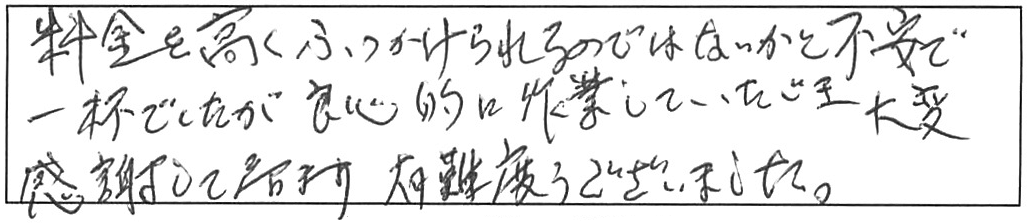 料金を高くふっかけられるのではないかと不安で
一杯でしたが良心的に作業していただき大変
感謝して居ります 有難度うございました。